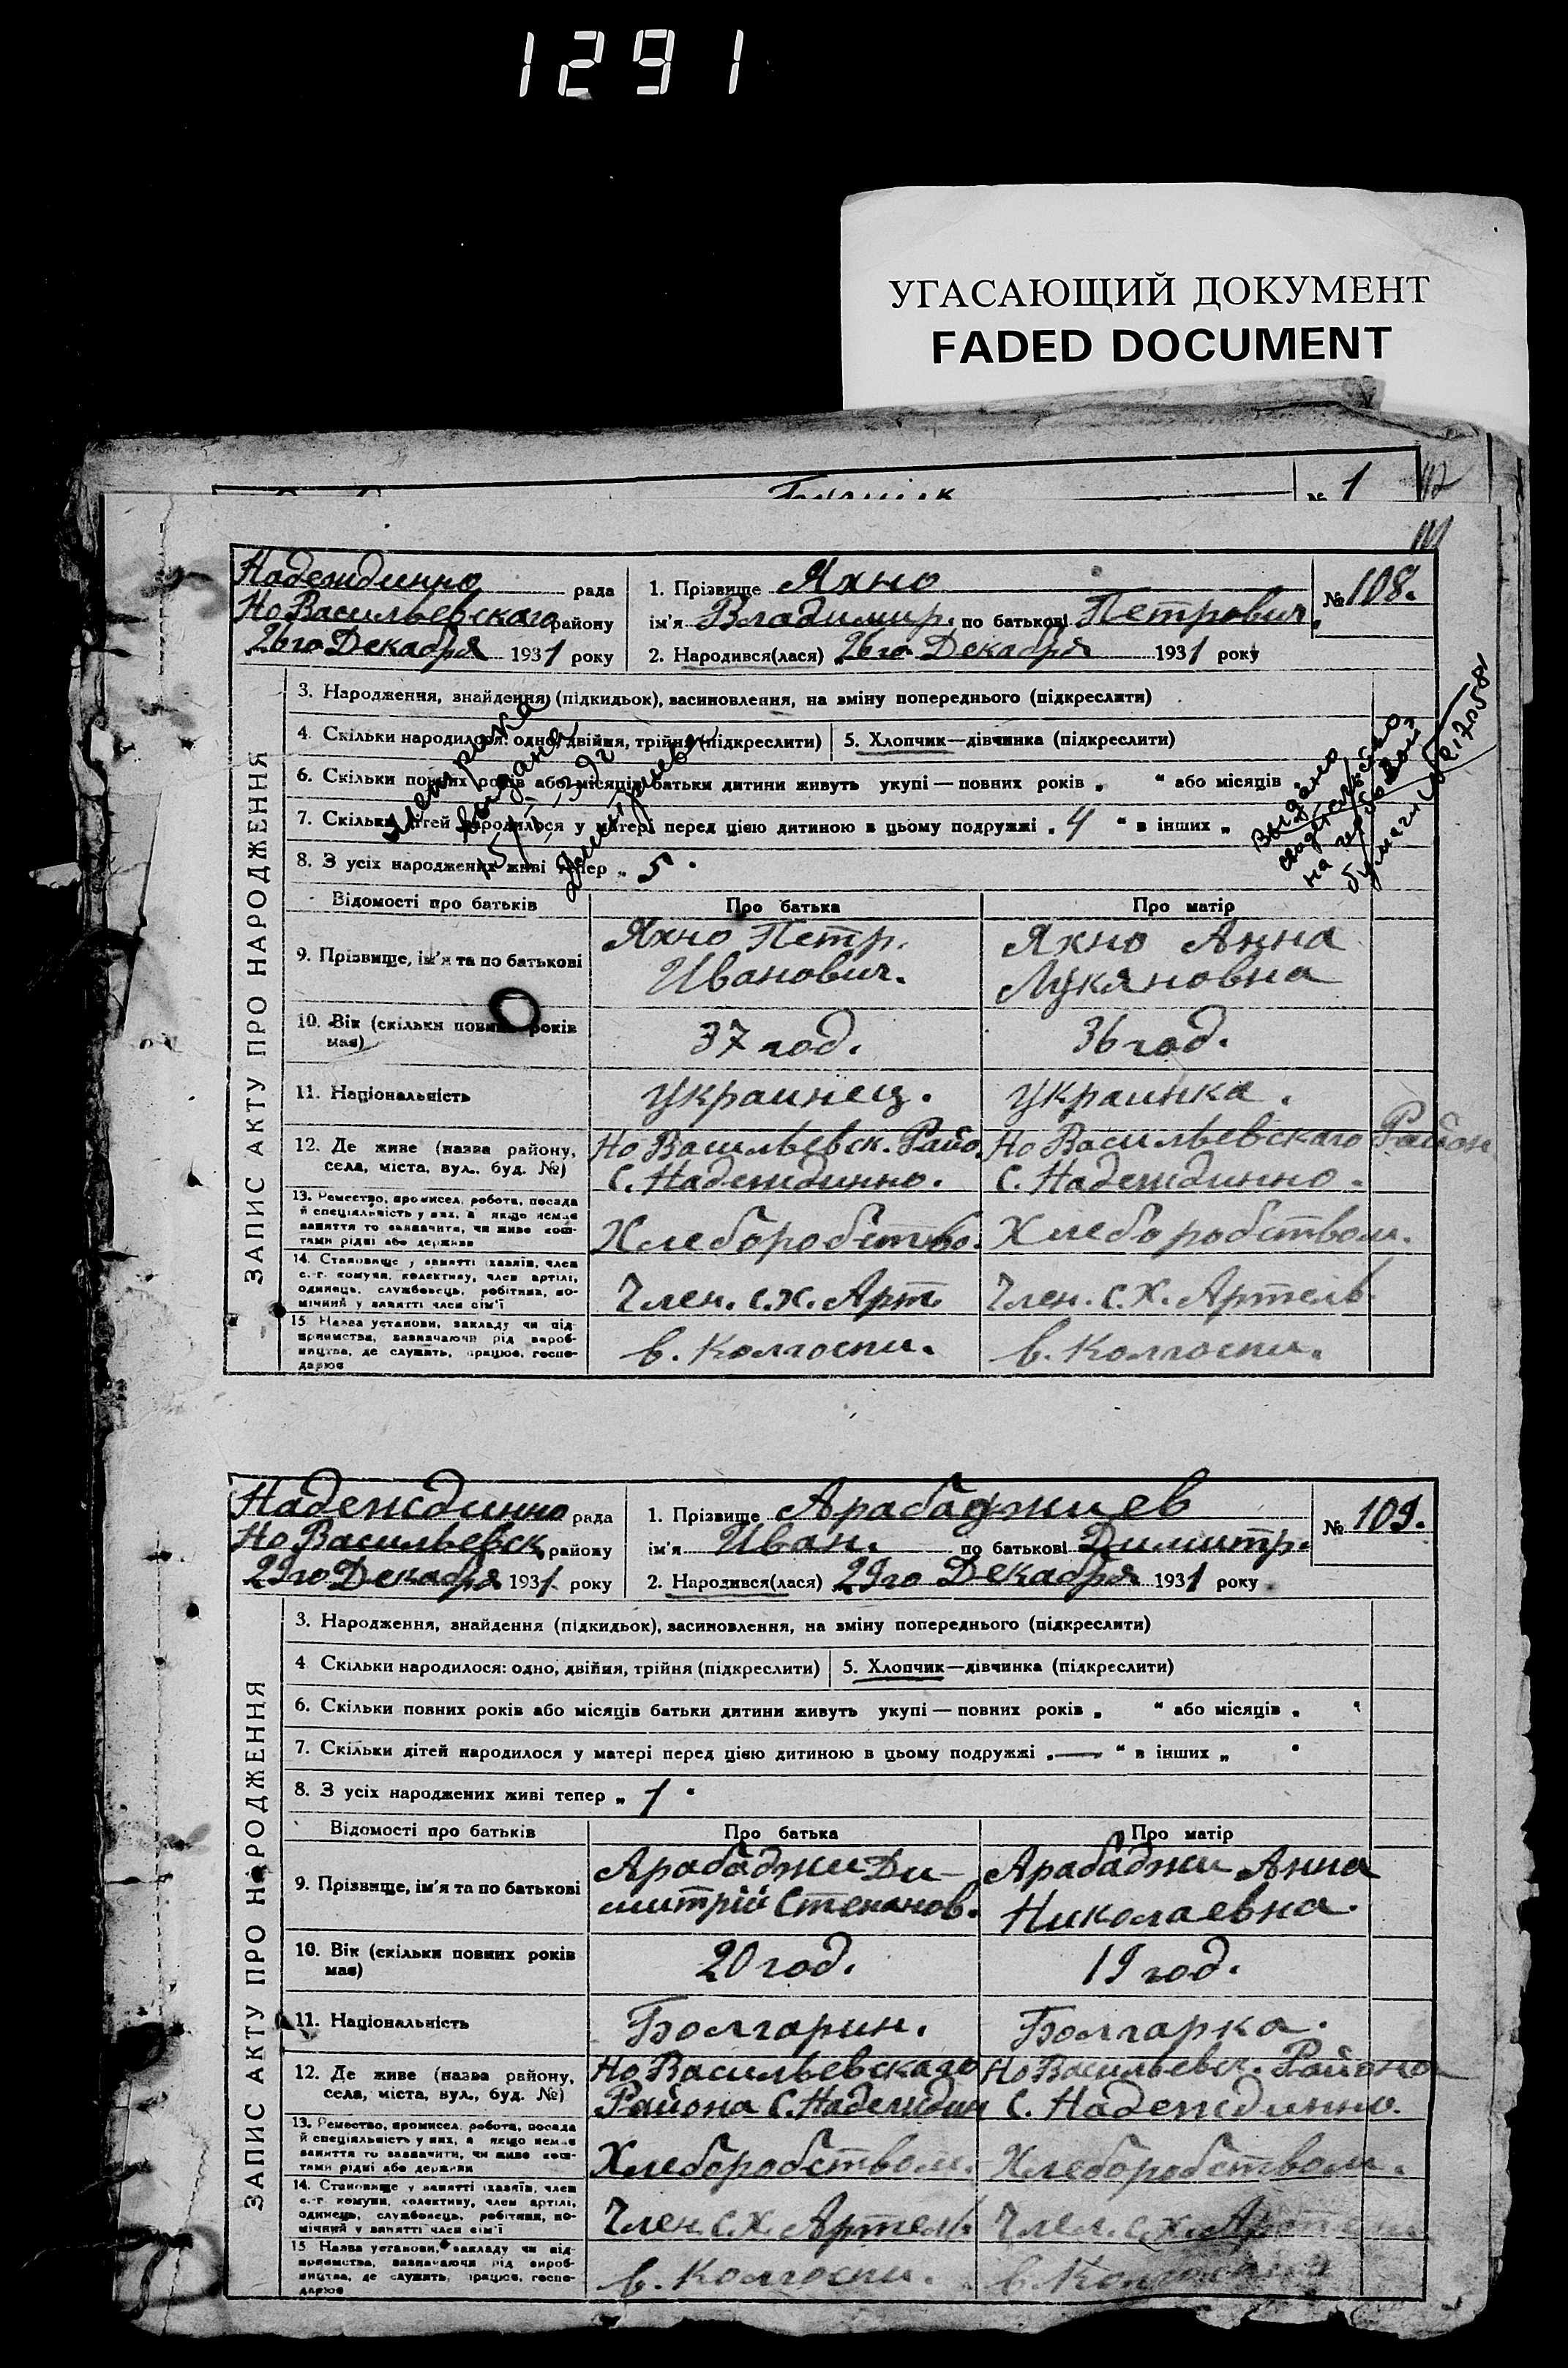 1291
УГАСАЮЩИЙ ДОКУМЕНТ
FADED DOCUMENT
№ 1
112
111
ЗАПИС АКТУ ПРО НАРОДЖЕННЯ
Надеждинно рада
Но Васильевскаго району
26го Декабря 1931 року
1. Прізвище Яхно
№ 108.
ім'я Владимир. по батькові Петрович.
2. Народився(лася) 26го Декабря 1931 року
3. Народження, знайдення (підкидьок), васиновлення, на зміну попереднього (підкреслити)
4. Скільки народилося: одно, двійня, трійня (підкреслити) 5. Хлопчик—дівчинка (підкреслити)
6. Скільки повних років або місяців батьки дитини живуть укупі — повних років „ “ або місяців „
7. Скільки дітей народилося у матері перед цією дитиною в цьому подружжі „ 4 “ в інших „
8. З усіх народжених живі тепер „ 5 .
Метрика
выдана
Выдано
на
Відомості про батьків Про батька Про матір
9. Прізвище, ім'я та по батькові
Яхно Петр.
Иванович.
Яхно Анна
Лукяновна
10. Вік (скільки повних років має)
37 год. 36 год.
11. Національність Украинец. Украинка.
12. Де живе (назва району, села, міста, вул., буд. №)
Но Васильевск. Райо.
С. Надеждинно.
Но Васильевскаго Район
С. Надеждинно.
13. Ремество, промисел, робота, посада
й спеціяльність у них, а якщо немає
заняття то зазначити, чи живе кош-
тами рідні або держави
Хлеборобство. Хлеборобством.
14. Становище у занятті: хазяїн, член
с.-г. комуни, колективу, член артілі,
одинець, службовець, робітник, по-
мічний у занятті член сім'ї
Член. с.х. Арт. Член. С.Х. Артель
15. Назва установи, закладу чи під-
приємства, зазначаючи рід вироб-
ництва, де служить, працює, госпо-
дарює
в. Колгоспи. в. Колгоспи.
ЗАПИС АКТУ ПРО НАРОДЖЕННЯ
Надеждинно рада
Но Васильевск. району
29го Декабря 1931. року
1. Прізвище Арабаджиев
№ 109.
ім'я Иван. по батькові Димитр.
2. Народився(лася) 29го Декабря 1931 року
3. Народження, знайдення (підкидьок), васиновлення, на зміну попереднього (підкреслити)
4. Скільки народилося: одно, двійня, трійня (підкреслити) 5. Хлопчик—дівчинка (підкреслити)
6. Скільки повних років або місяців батьки дитини живуть укупі — повних років „ “ або місяців „ “
7. Скільки дітей народилося у матері перед цією дитиною в цьому подружжі „ — “ в інших „ “
8. З усіх народжених живі тепер „ 1 “
Відомості про батьків Про батька Про матір
9. Прізвище, ім'я та по батькові
Арабаджи Ди-
митрий Степанов.
Арабаджи Анна
Николаевна.
10. Вік (скільки повних років має)
20 год. 19 год.
11. Національність Болгарин. Болгарка.
12. Де живе (назва району, села, міста, вул., буд. №)
Но Васильевскаго
Района С. Надеждин
Но Васильевск. Района
С. Надеждинно.
13. Ремество, промисел, робота, посада
й спеціяльність у них, а якщо немає
заняття то зазначити, чи живе кош-
тами рідні або держави
Хлеборобством. Хлеборобством.
14. Становище у занятті: хазяїн, член
с.-г. комуни, колективу, член артілі,
одинець, службовець, робітник, по-
мічний у занятті член сім'ї
Член. с.х. Артель. Член. с.х. Артель
15. Назва установи, закладу чи під-
приємства, зазначаючи рід вироб-
ництва, де служить, працює, госпо-
дарює
в. Колгоспи. в. Колгоспи